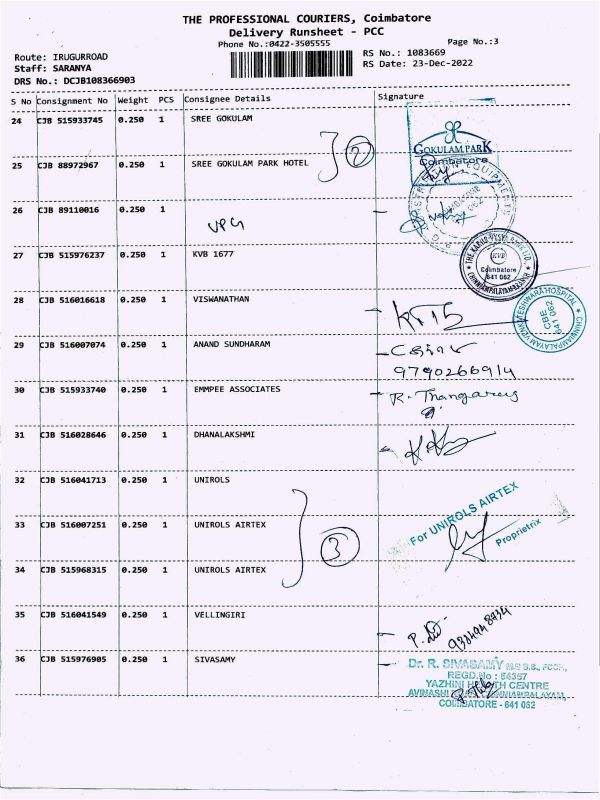 THE PROFESSIONAL COURIERS, Coimbatore
Delivery Runsheet - PCC
Phone No.:0422-3505555
Page No.:3
Route: IRUGURROAD
RS No.: 1083669
Staff: SARANYA
RS Date: 23-Dec-2022
DRS No.: DCJB108366903
S No Consignment No Weight PCS Consignee Details Signature
24 CJB 515933745 0.250 1 SREE GOKULAM
GOKULAM PARK
Coimbatore
2
25 CJB 88972967 0.250 1 SREE GOKULAM PARK HOTEL
26 CJB 89110016 0.250 1
VPG
27 CJB 515976237 0.250 1 KVB 1677
THE KARUR VYSYA BANK LTD.
KVB
Coimbatore
641 062
CHINNIAMPALAYAM BRANCH
28 CJB 516016618 0.250 1 VISWANATHAN
CHINNIAMPALAYAM VENKATESHWARA HOSPITAL
CBE
641 062
29 CJB 516007074 0.250 1 ANAND SUNDHARAM
30 CJB 515933740 0.250 1 EMMPEE ASSOCIATES
31 CJB 516028646 0.250 1 DHANALAKSHMI
32 CJB 516041713 0.250 1 UNIROLS
For UNIROLS AIRTEX
Proprietrix
33 CJB 516007251 0.250 1 UNIROLS AIRTEX
3
34 CJB 515968315 0.250 1 UNIROLS AIRTEX
35 CJB 516041549 0.250 1 VELLINGIRI
36 CJB 515976905 0.250 1 SIVASAMY
Dr. R. SIVASAMY
REGD.No : 54357
YAZHINI HEALTH CENTRE
COIMBATORE - 641 062